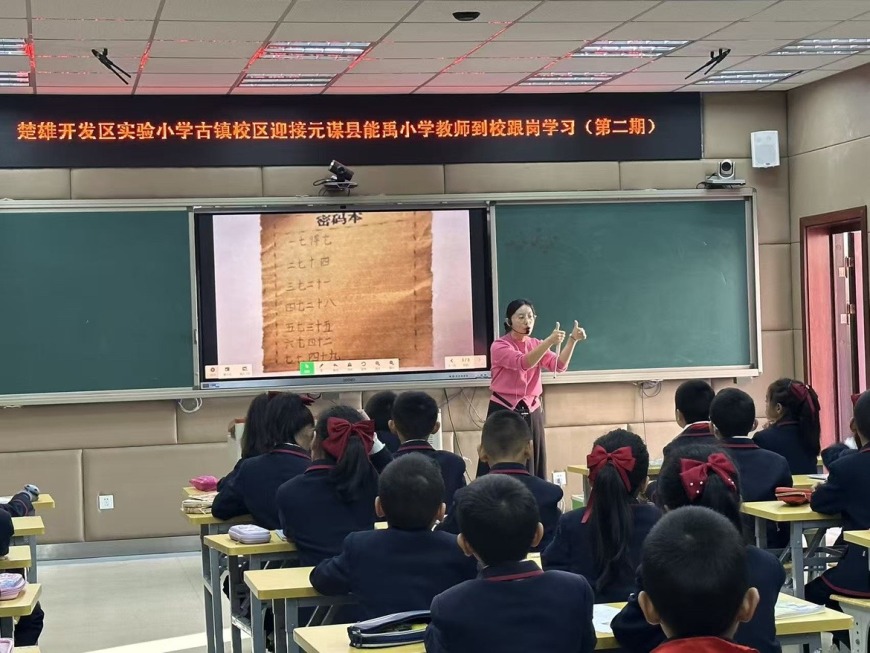 楚雄开发区实验小学古镇校区迎接元谋县能禹小学教师到校跟岗学习（第二期）
密码本
一七得七
二七十四
三七二十一
四七二十八
五七三十五
六七四十二
七七四十九